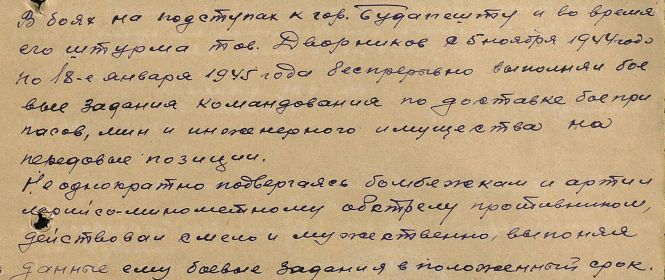 В боях на подступах к гор. Будапешту и во время
его штурма тов. Дворников с 5 ноября 1944 года
по 18-е января 1945 года беспрерывно выполнял бое
вые задания командования по доставке боепри
пасов, мин и инженерного имущества на
передовые позиции.
Неоднократно подвергаясь бомбежкам и артил
лерийско-минометному обстрелу противником,
действовал смело и мужественно, выполняя
данные ему боевые задания в положенный срок.